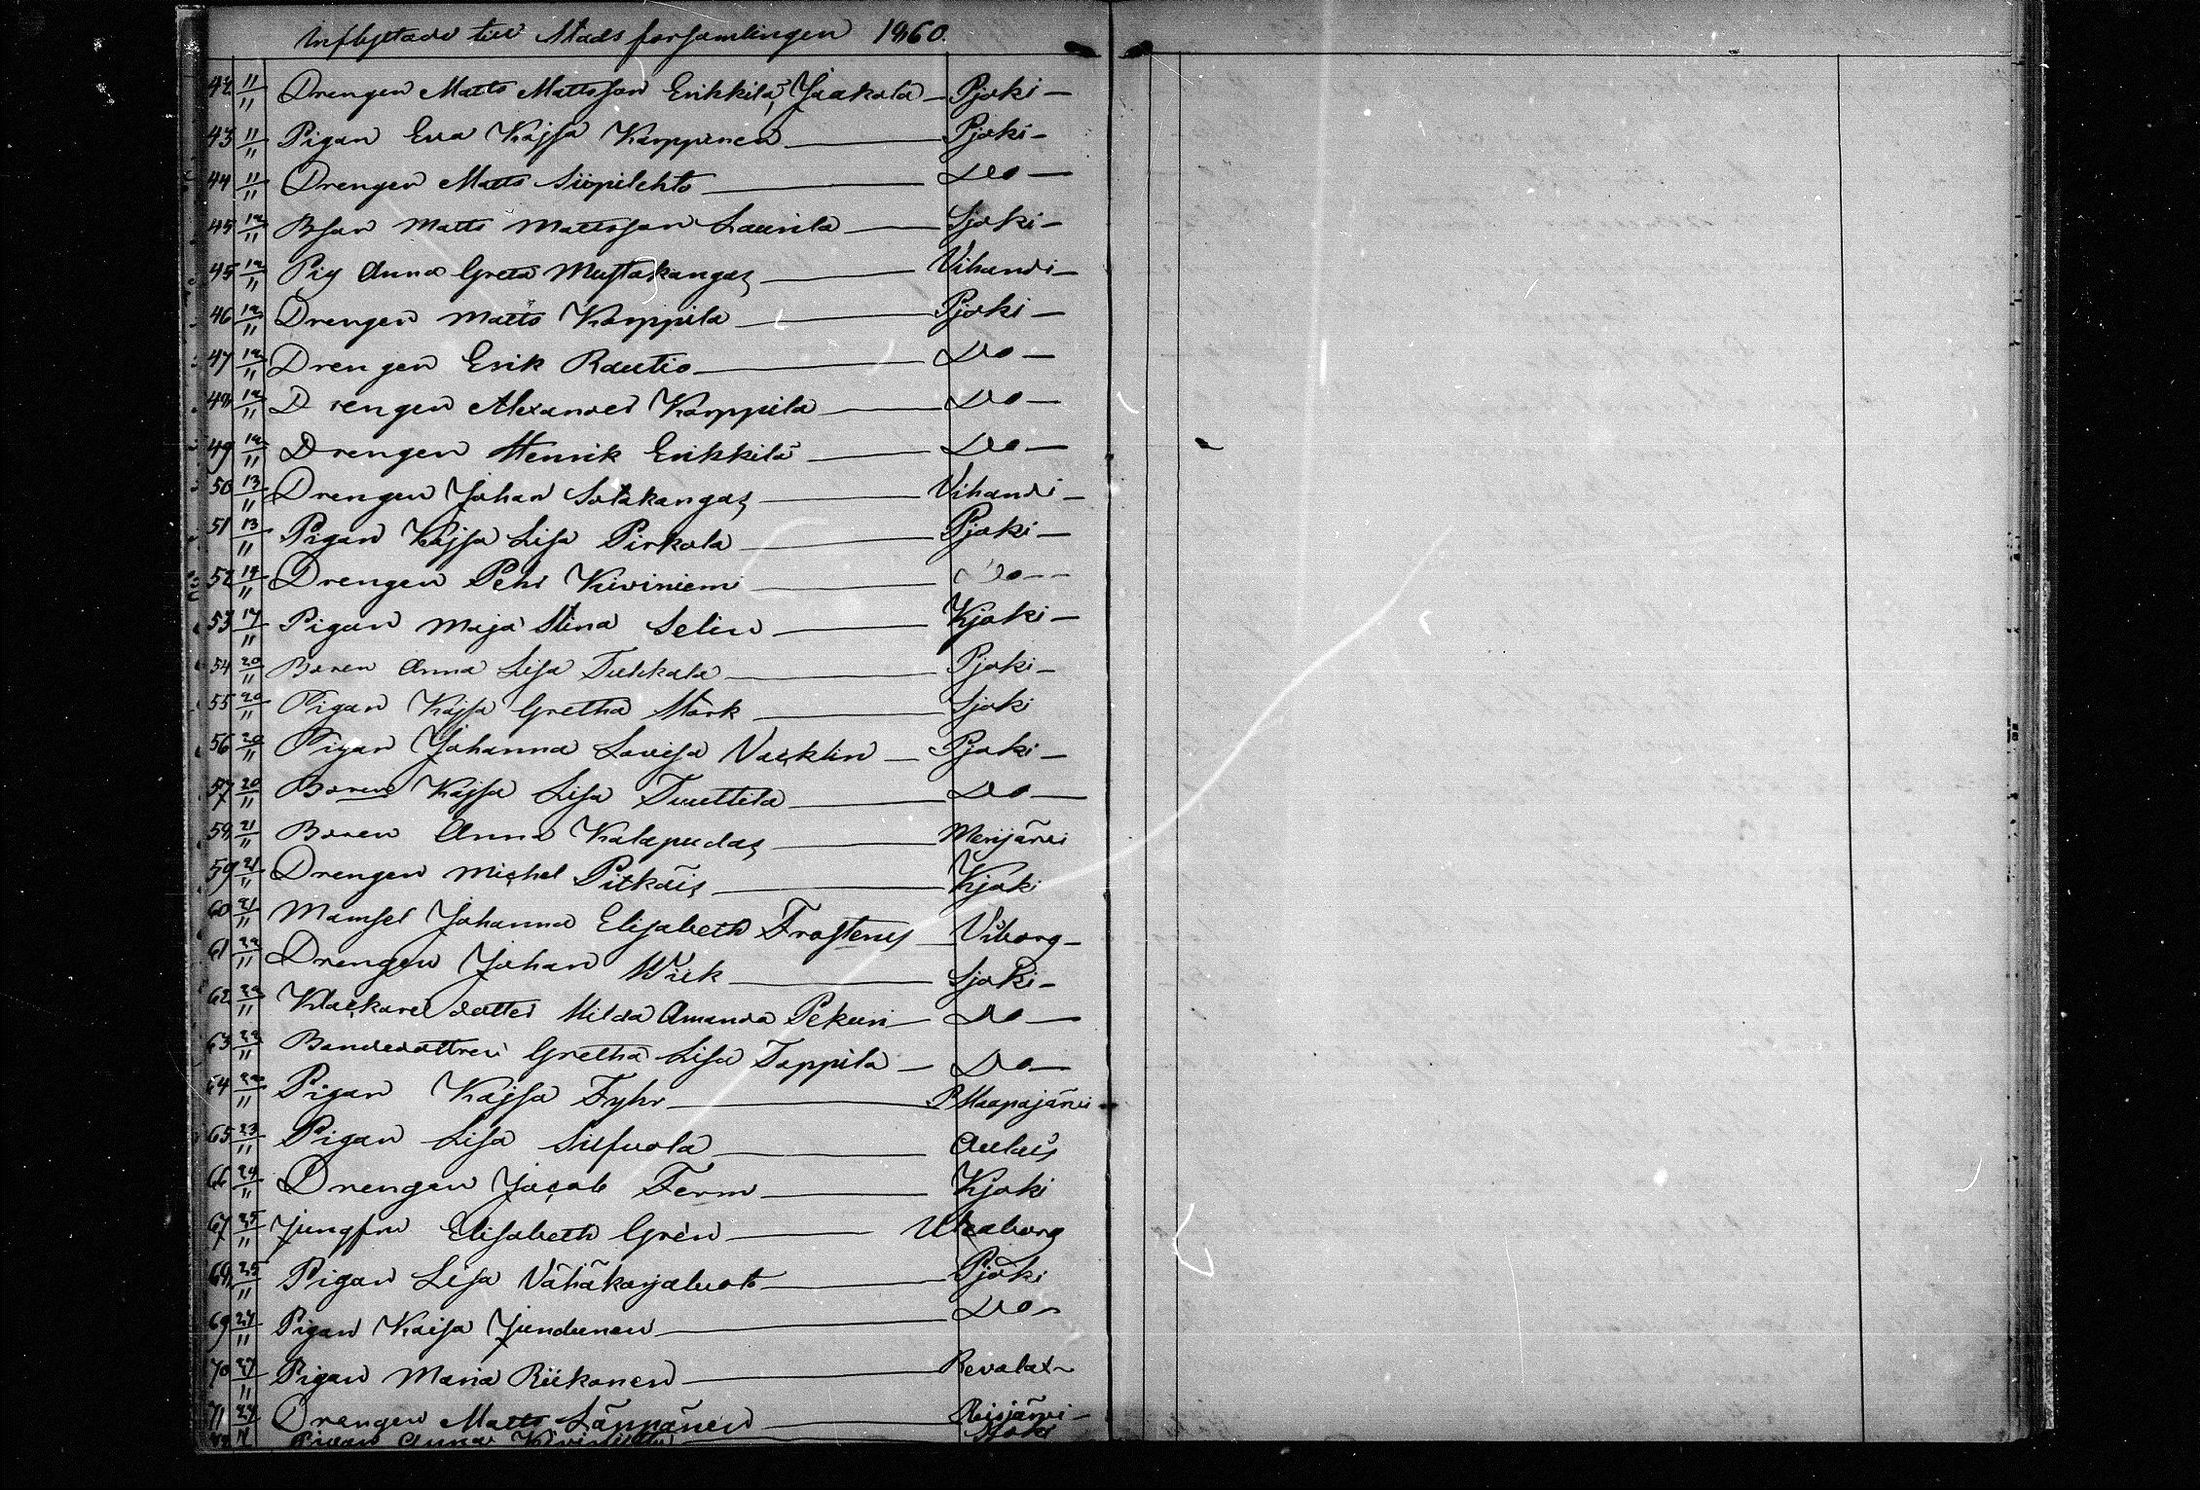 Inflyttade till Stads forsamlingen 1860.
42 11/11 Drengen Matts Mattsson Erikkilä, Jaakola — Pjoki —
43 11/11 Pigan Eva Kajsa Karppinen — Pjoki —
44 11/11 Drengen Matts Siipilehto — Do —
45 12/11 Bson Matts Mattsson Laurila — Sjoki —
45 12/11 Pig Anna Greta Mustakangas — Vihandi —
46 12/11 Drengen Matts Karppila — Pjoki —
47 12/11 Drengen Erik Rautio — Do —
48 12/11 Drengen Alexander Karppila — Do —
49 12/11 Drengen Henrik Erikkilä — Do —
50 13/11 Drengen Johan Sotakangas — Vihandi —
51 13/11 Pigan Kajsa Lisa Pirkola — Pjoki —
52 14/11 Drengen Pehr Kiviniemi — Do —
53 17/11 Pigan Maja Stina Selin — Kjoki —
54 20/11 Boren Anna Lisa Tukkala — Pjoki —
55 20/11 Pigan Kajsa Gretha Stark — Sjoki
56 20/11 Pigan Johanna Lovisa Vacklin — Pjoki —
57 20/11 Boren Kajsa Lisa Tuuttila — Do —
58 21/11 Boren Anna Kalapudas — Merijärvi
59 21/11 Drengen Michel Pitkäis — Kjoki
60 21/11 Mamsel Johanna Elisabeth Frosterus — Viborg —
61 22/11 Drengen Johan Wiik — Sjoki —
62 22/11 Klockare dotter Hilda Amanda Pekuri — Do —
63 22/11 Bondedottren Gretha Lisa Tappila — Do —
64 22/11 Pigan Kajsa Fyhr — P Haapajärvi
65 23/11 Pigan Lisa — Oulais
66 24/11 Drengen Jacob Ferm — Kjoki
67 25/11 Jungfru Elisabeth Grén — Uleaborg
68 25/11 Pigan Lisa Vähäkarjaluoto — Pjoki
69 27/11 Pigan Kaisa Junttunen — Do —
70 27/11 Pigan Maria Riikonen — Revolax —
71 27/11 Drengen Matts Länpänen — Reisjärvi —
Pigan Anna